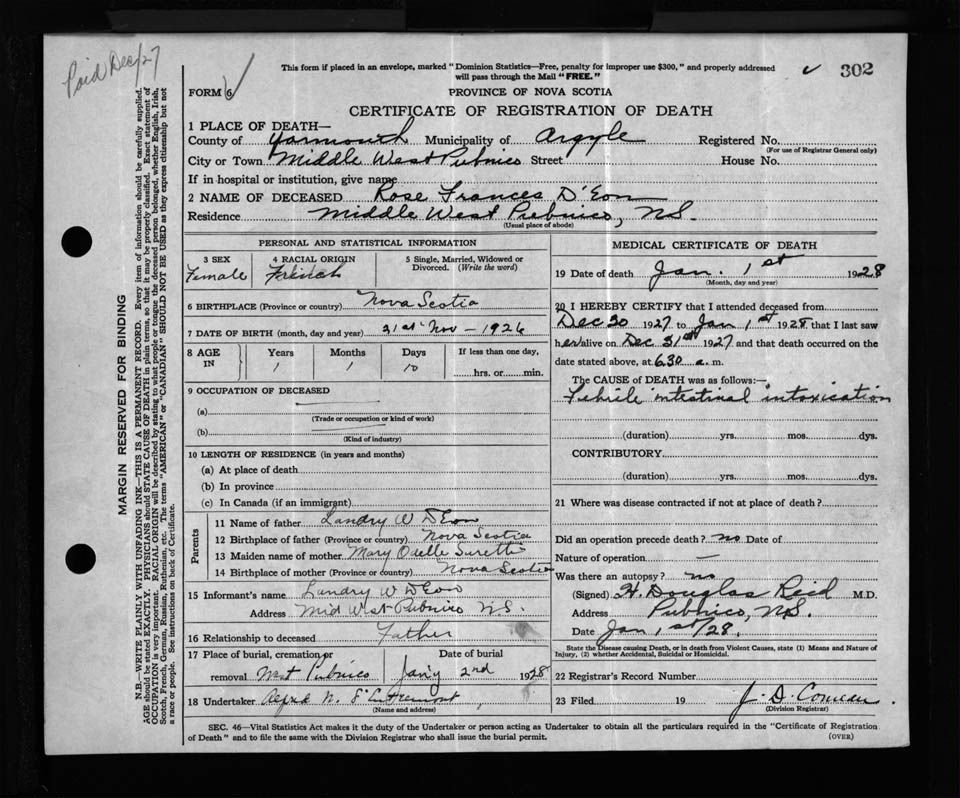 Paid Dec/27
This form if placed in an envelope, marked "Dominion Statistics—Free, penalty for improper use $300," and properly addressed
will pass through the Mail "FREE."
302
FORM 6
PROVINCE OF NOVA SCOTIA
CERTIFICATE OF REGISTRATION OF DEATH
1 PLACE OF DEATH—
County of Yarmouth Municipality of Argyle Registered No.
(For use of Registrar General only)
City or Town Middle West Pubnico Street House No.
If in hospital or institution, give name
2 NAME OF DECEASED Rose Frances D'Eon
Residence Middle West Pubnico, N.S.
(Usual place of abode)
PERSONAL AND STATISTICAL INFORMATION
3 SEX
Female
4 RACIAL ORIGIN
French
5 Single, Married, Widowed or
Divorced. (Write the word)
6 BIRTHPLACE (Province or country) Nova Scotia
7 DATE OF BIRTH (month, day and year) 21st Nov - 1926
8 AGE
IN
Years Months Days If less than one day,
1 1 10 hrs. or min.
9 OCCUPATION OF DECEASED
(a)
(Trade or occupation or kind of work)
(b)
(Kind of industry)
10 LENGTH OF RESIDENCE (in years and months)
(a) At place of death
(b) In province
(c) In Canada (if an immigrant)
Parents
11 Name of father Landry W D'Eon
12 Birthplace of father (Province or country) Nova Scotia
13 Maiden name of mother Mary Odelle Surette
14 Birthplace of mother (Province or country) Nova Scotia
15 Informant's name Landry W D'Eon
Address Mid West Pubnico N.S.
16 Relationship to deceased Father
17 Place of burial, cremation or
removal West Pubnico
Date of burial
Jan'y 2nd 1928
18 Undertaker
(Name and address)
MEDICAL CERTIFICATE OF DEATH
19 Date of death Jan. 1st 1928
(Month, day and year)
20 I HEREBY CERTIFY that I attended deceased from
Dec 30 1927 to Jan 1st 1928 that I last saw
her alive on Dec 31st 1927 and that death occurred on the
date stated above, at 6.30 a. m.
The CAUSE of DEATH was as follows:—
Febrile intestinal intoxication
(duration) yrs. mos. dys.
CONTRIBUTORY
(duration) yrs. mos. dys.
21 Where was disease contracted if not at place of death?
Did an operation precede death? no Date of
Nature of operation —
Was there an autopsy? no
(Signed) H. Douglas Reid M.D.
Address Pubnico, N.S.
Date Jan 1st/28.
State the Disease causing Death, or in death from Violent Causes, state (1) Means and Nature of
Injury, (2) whether Accidental, Suicidal or Homicidal.
22 Registrar's Record Number
23 Filed 19 J. D. Comeau
(Division Registrar)
SEC. 46—Vital Statistics Act makes it the duty of the Undertaker or person acting as Undertaker to obtain all the particulars required in the "Certificate of Registration
of Death" and to file the same with the Division Registrar who shall issue the burial permit.
(OVER)
MARGIN RESERVED FOR BINDING
N.B.—WRITE PLAINLY WITH UNFADING INK—THIS IS A PERMANENT RECORD. Every item of information should be carefully supplied.
AGE should be stated EXACTLY. PHYSICIANS should STATE CAUSE OF DEATH in plain terms, so that it may be properly classified. Exact statement of
OCCUPATION is very important. RACIAL ORIGIN will be described by stating to what people or tongue the deceased person belonged, whether English, Irish,
Scotch, French, German, Russian, Ruthenian, etc. The terms "AMERICAN" or "CANADIAN" SHOULD NOT BE USED as they express citizenship but not
a race or people. See instructions on back of Certificate.